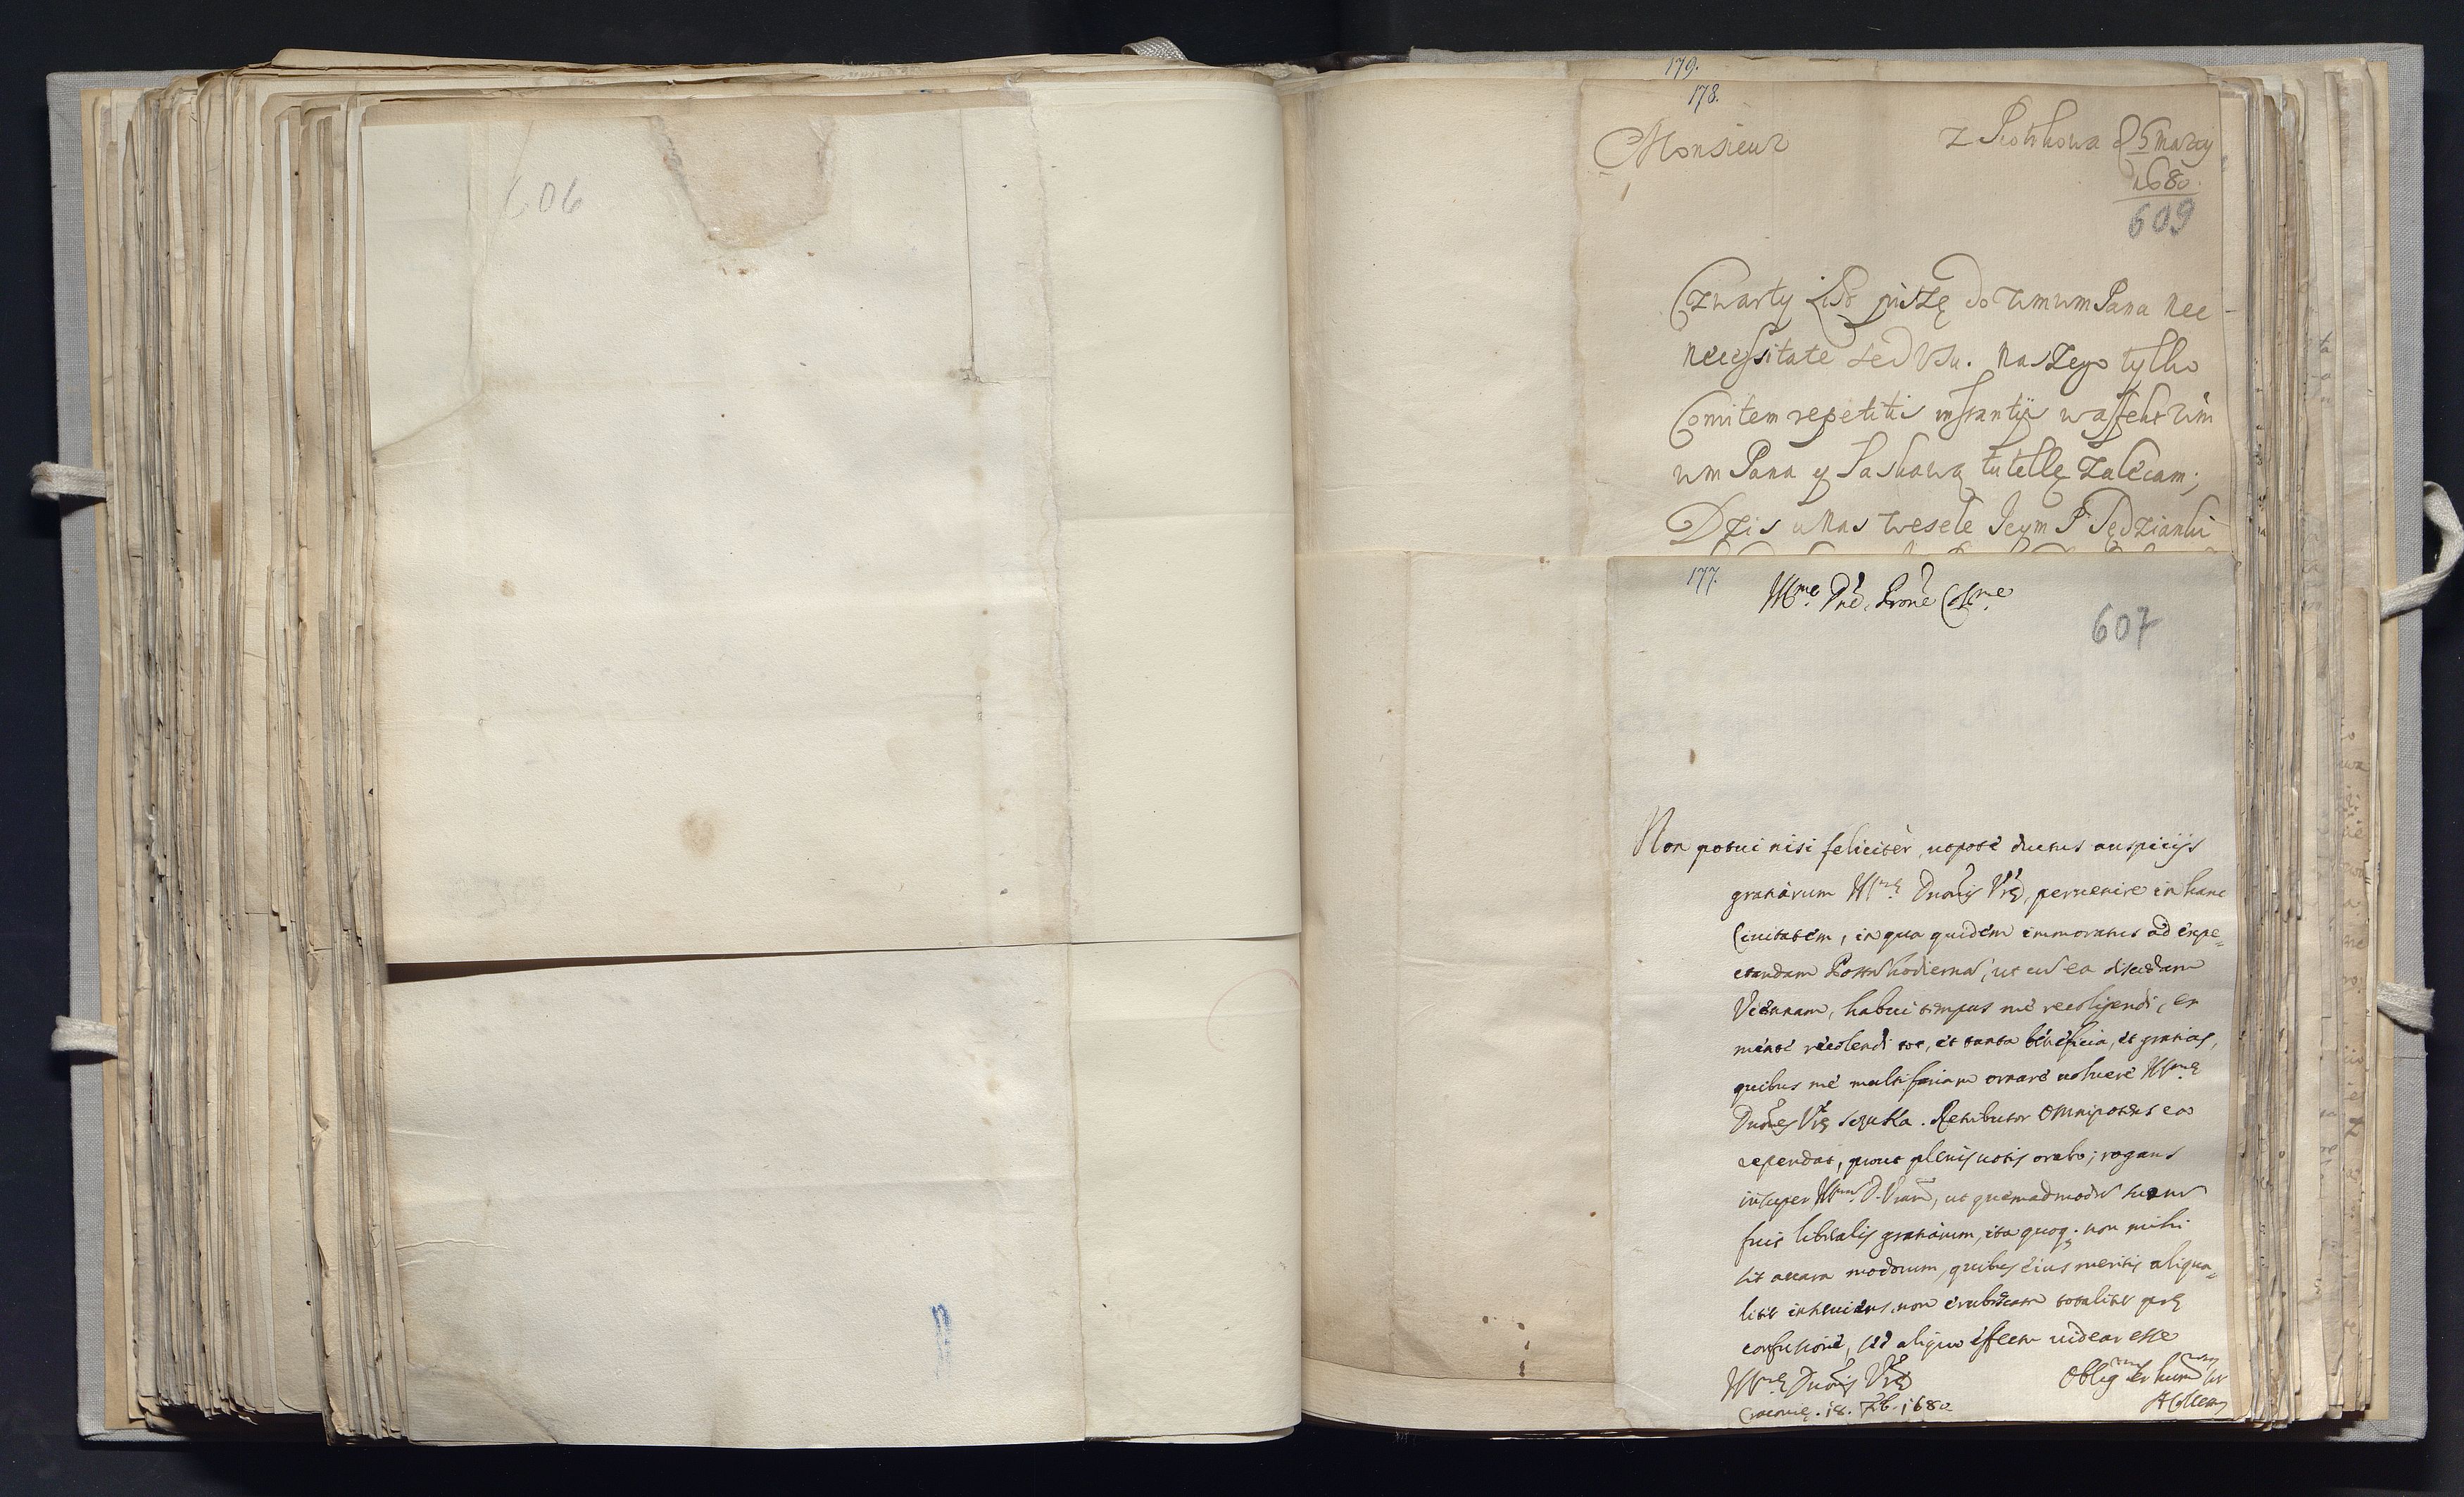 606
179.
178.
Monsieur z Piotrkowa d 5 marcy
1680.
609
Czwarty List piszę do WmWm Pana nec
necessitate sed Usu. naszego tylko
Comitem repetitis instantijs Wm
Wm Pana y Laskawą tutellę zalecam;
Dzis u nas wesele Jeym P Sędzianki
177.
Illme Dne, Prone Colme
607
Non potui nisi felicitèr, utpotè ductus auspicijs
gratiarum Illmę Duonis Vrę, peruenire in hanc
Ciuitatem, in qua quidem immoratus ad expe=
ctandam Postā hodiernā, ut cū ea discedam
Viennam, habui tempus me recoligendi, et
mente recolendi tot, et tanta beneficia, et gratias,
quibus me multifariam ornare uoluere Illmę
Duonis Vrę. Retributor Omnipotens ea
rependat, prout plenis uotis orabo; rogans
insuper Illmā D. Vram, ut quemadmodū
fuit liberalis gratiarum, ita quoq. non mihi
sit auara modorum, quibus eius meritis aliqua=
liter inseruiens, non erubescam totaliter prę
confusione, sed aliquo effectu uidear esse
Illmę Duonis Vrę
Cracouię. 18. Feb. 1680